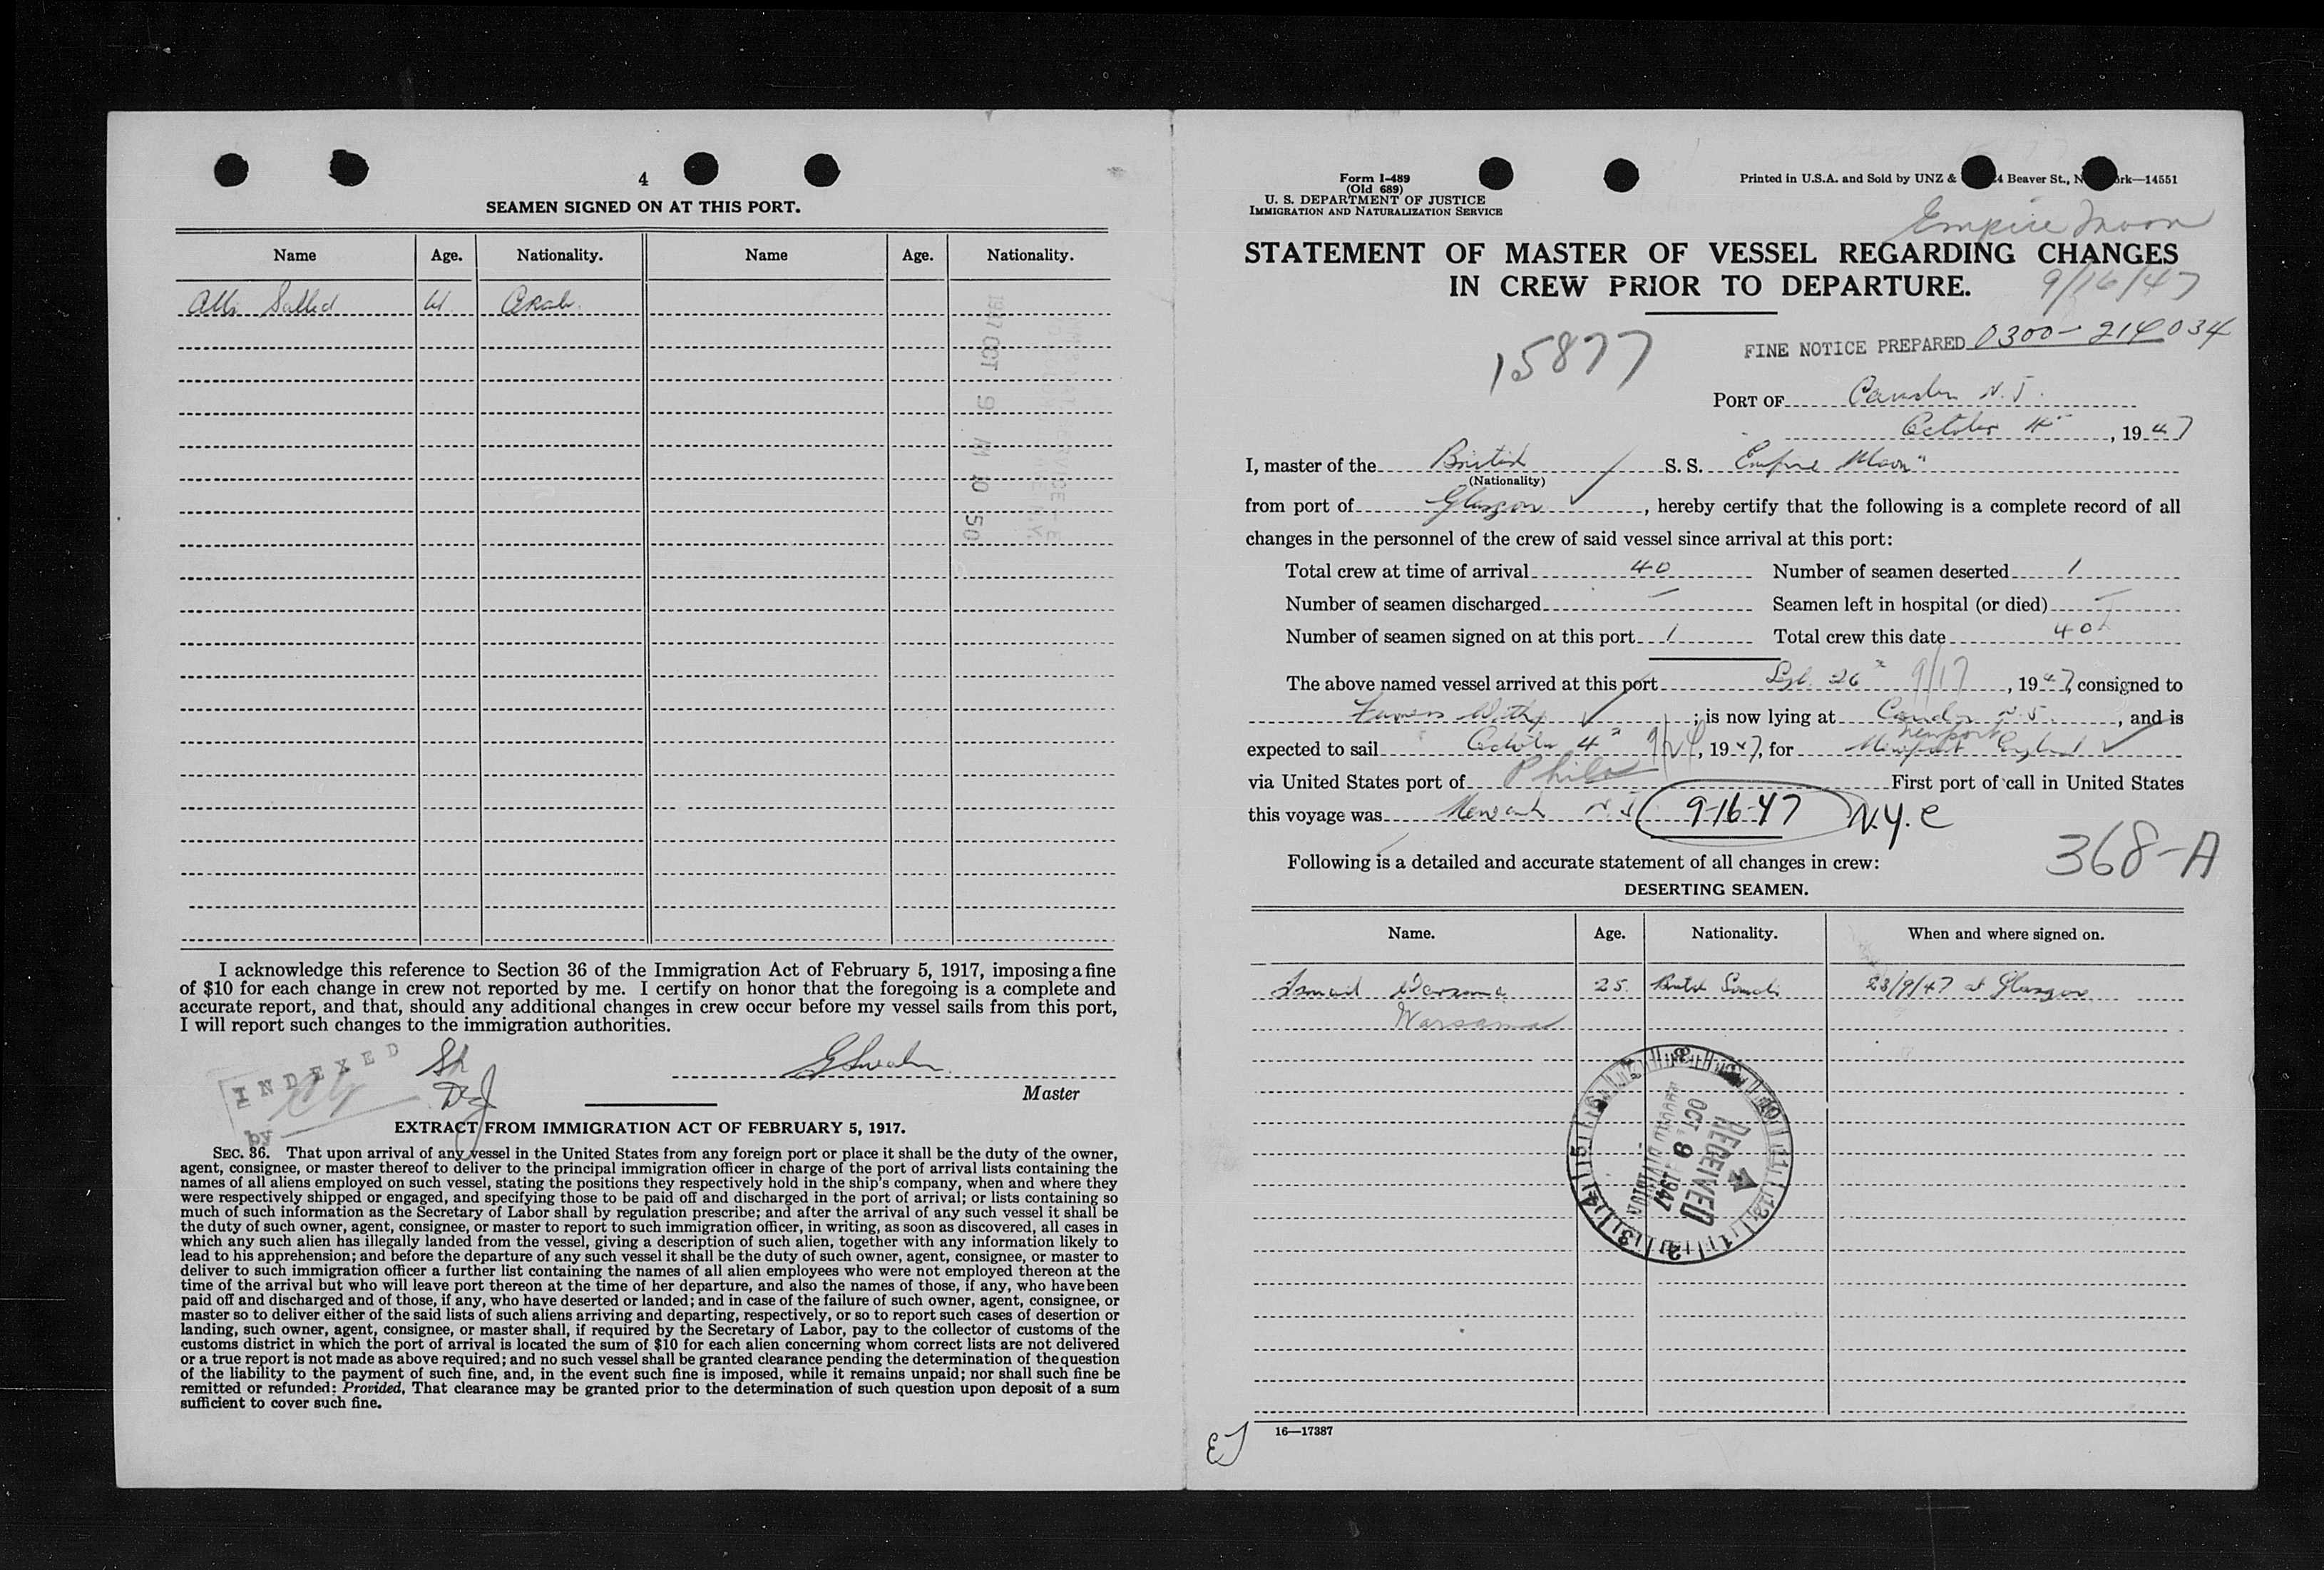 4
SEAMEN SIGNED ON AT THIS PORT.
Name Age. Nationality. Name Age. Nationality.
Alli Salled 41 Arab.
1947 OCT 9 AM 10 50
I acknowledge this reference to Section 36 of the Immigration Act of February 5, 1917, imposing a fine
of $10 for each change in crew not reported by me. I certify on honor that the foregoing is a complete and
accurate report, and that, should any additional changes in crew occur before my vessel sails from this port,
I will report such changes to the immigration authorities.
INDEXED
by
Master
EXTRACT FROM IMMIGRATION ACT OF FEBRUARY 5, 1917.
SEC. 36. That upon arrival of any vessel in the United States from any foreign port or place it shall be the duty of the owner,
agent, consignee, or master thereof to deliver to the principal immigration officer in charge of the port of arrival lists containing the
names of all aliens employed on such vessel, stating the positions they respectively hold in the ship's company, when and where they
were respectively shipped or engaged, and specifying those to be paid off and discharged in the port of arrival; or lists containing so
much of such information as the Secretary of Labor shall by regulation prescribe; and after the arrival of any such vessel it shall be
the duty of such owner, agent, consignee, or master to report to such immigration officer, in writing, as soon as discovered, all cases in
which any such alien has illegally landed from the vessel, giving a description of such alien, together with any information likely to
lead to his apprehension; and before the departure of any such vessel it shall be the duty of such owner, agent, consignee, or master to
deliver to such immigration officer a further list containing the names of all alien employees who were not employed thereon at the
time of the arrival but who will leave port thereon at the time of her departure, and also the names of those, if any, who have been
paid off and discharged and of those, if any, who have deserted or landed; and in case of the failure of such owner, agent, consignee, or
master so to deliver either of the said lists of such aliens arriving and departing, respectively, or so to report such cases of desertion or
landing, such owner, agent, consignee, or master shall, if required by the Secretary of Labor, pay to the collector of customs of the
customs district in which the port of arrival is located the sum of $10 for each alien concerning whom correct lists are not delivered
or a true report is not made as above required; and no such vessel shall be granted clearance pending the determination of the question
of the liability to the payment of such fine, and, in the event such fine is imposed, while it remains unpaid; nor shall such fine be
remitted or refunded: Provided, That clearance may be granted prior to the determination of such question upon deposit of a sum
sufficient to cover such fine.
Form I-489
(Old 689)
U. S. DEPARTMENT OF JUSTICE
IMMIGRATION AND NATURALIZATION SERVICE
Printed in U.S.A. and Sold by UNZ & 4 Beaver St., N ork—14551
Empire Moon
STATEMENT OF MASTER OF VESSEL REGARDING CHANGES
IN CREW PRIOR TO DEPARTURE.
9/16/47
15877
FINE NOTICE PREPARED 0300-214034
PORT OF Camden N.J.
October 4th, 1947
I, master of the British S. S. Empire Moon"
(Nationality)
from port of Glasgow, hereby certify that the following is a complete record of all
changes in the personnel of the crew of said vessel since arrival at this port:
Total crew at time of arrival 40 Number of seamen deserted 1
Number of seamen discharged — Seamen left in hospital (or died) —
Number of seamen signed on at this port 1 Total crew this date 40
The above named vessel arrived at this port 26 9/17, 1947, consigned to
Furness Withy; is now lying at Camden N.J., and is
expected to sail October 4" 9/24, 1947, for Newport Newport England
via United States port of Phila First port of call in United States
this voyage was Newark N.J. 9-16-47 N.Y.C
368-A
Following is a detailed and accurate statement of all changes in crew:
DESERTING SEAMEN.
Name. Age. Nationality. When and where signed on.
Ismail Warsama 25. British Somali 23/9/47 at Glasgow
Warsama
RECEIVED
OCT 9 1947
DIVISION
EJ
16—17387